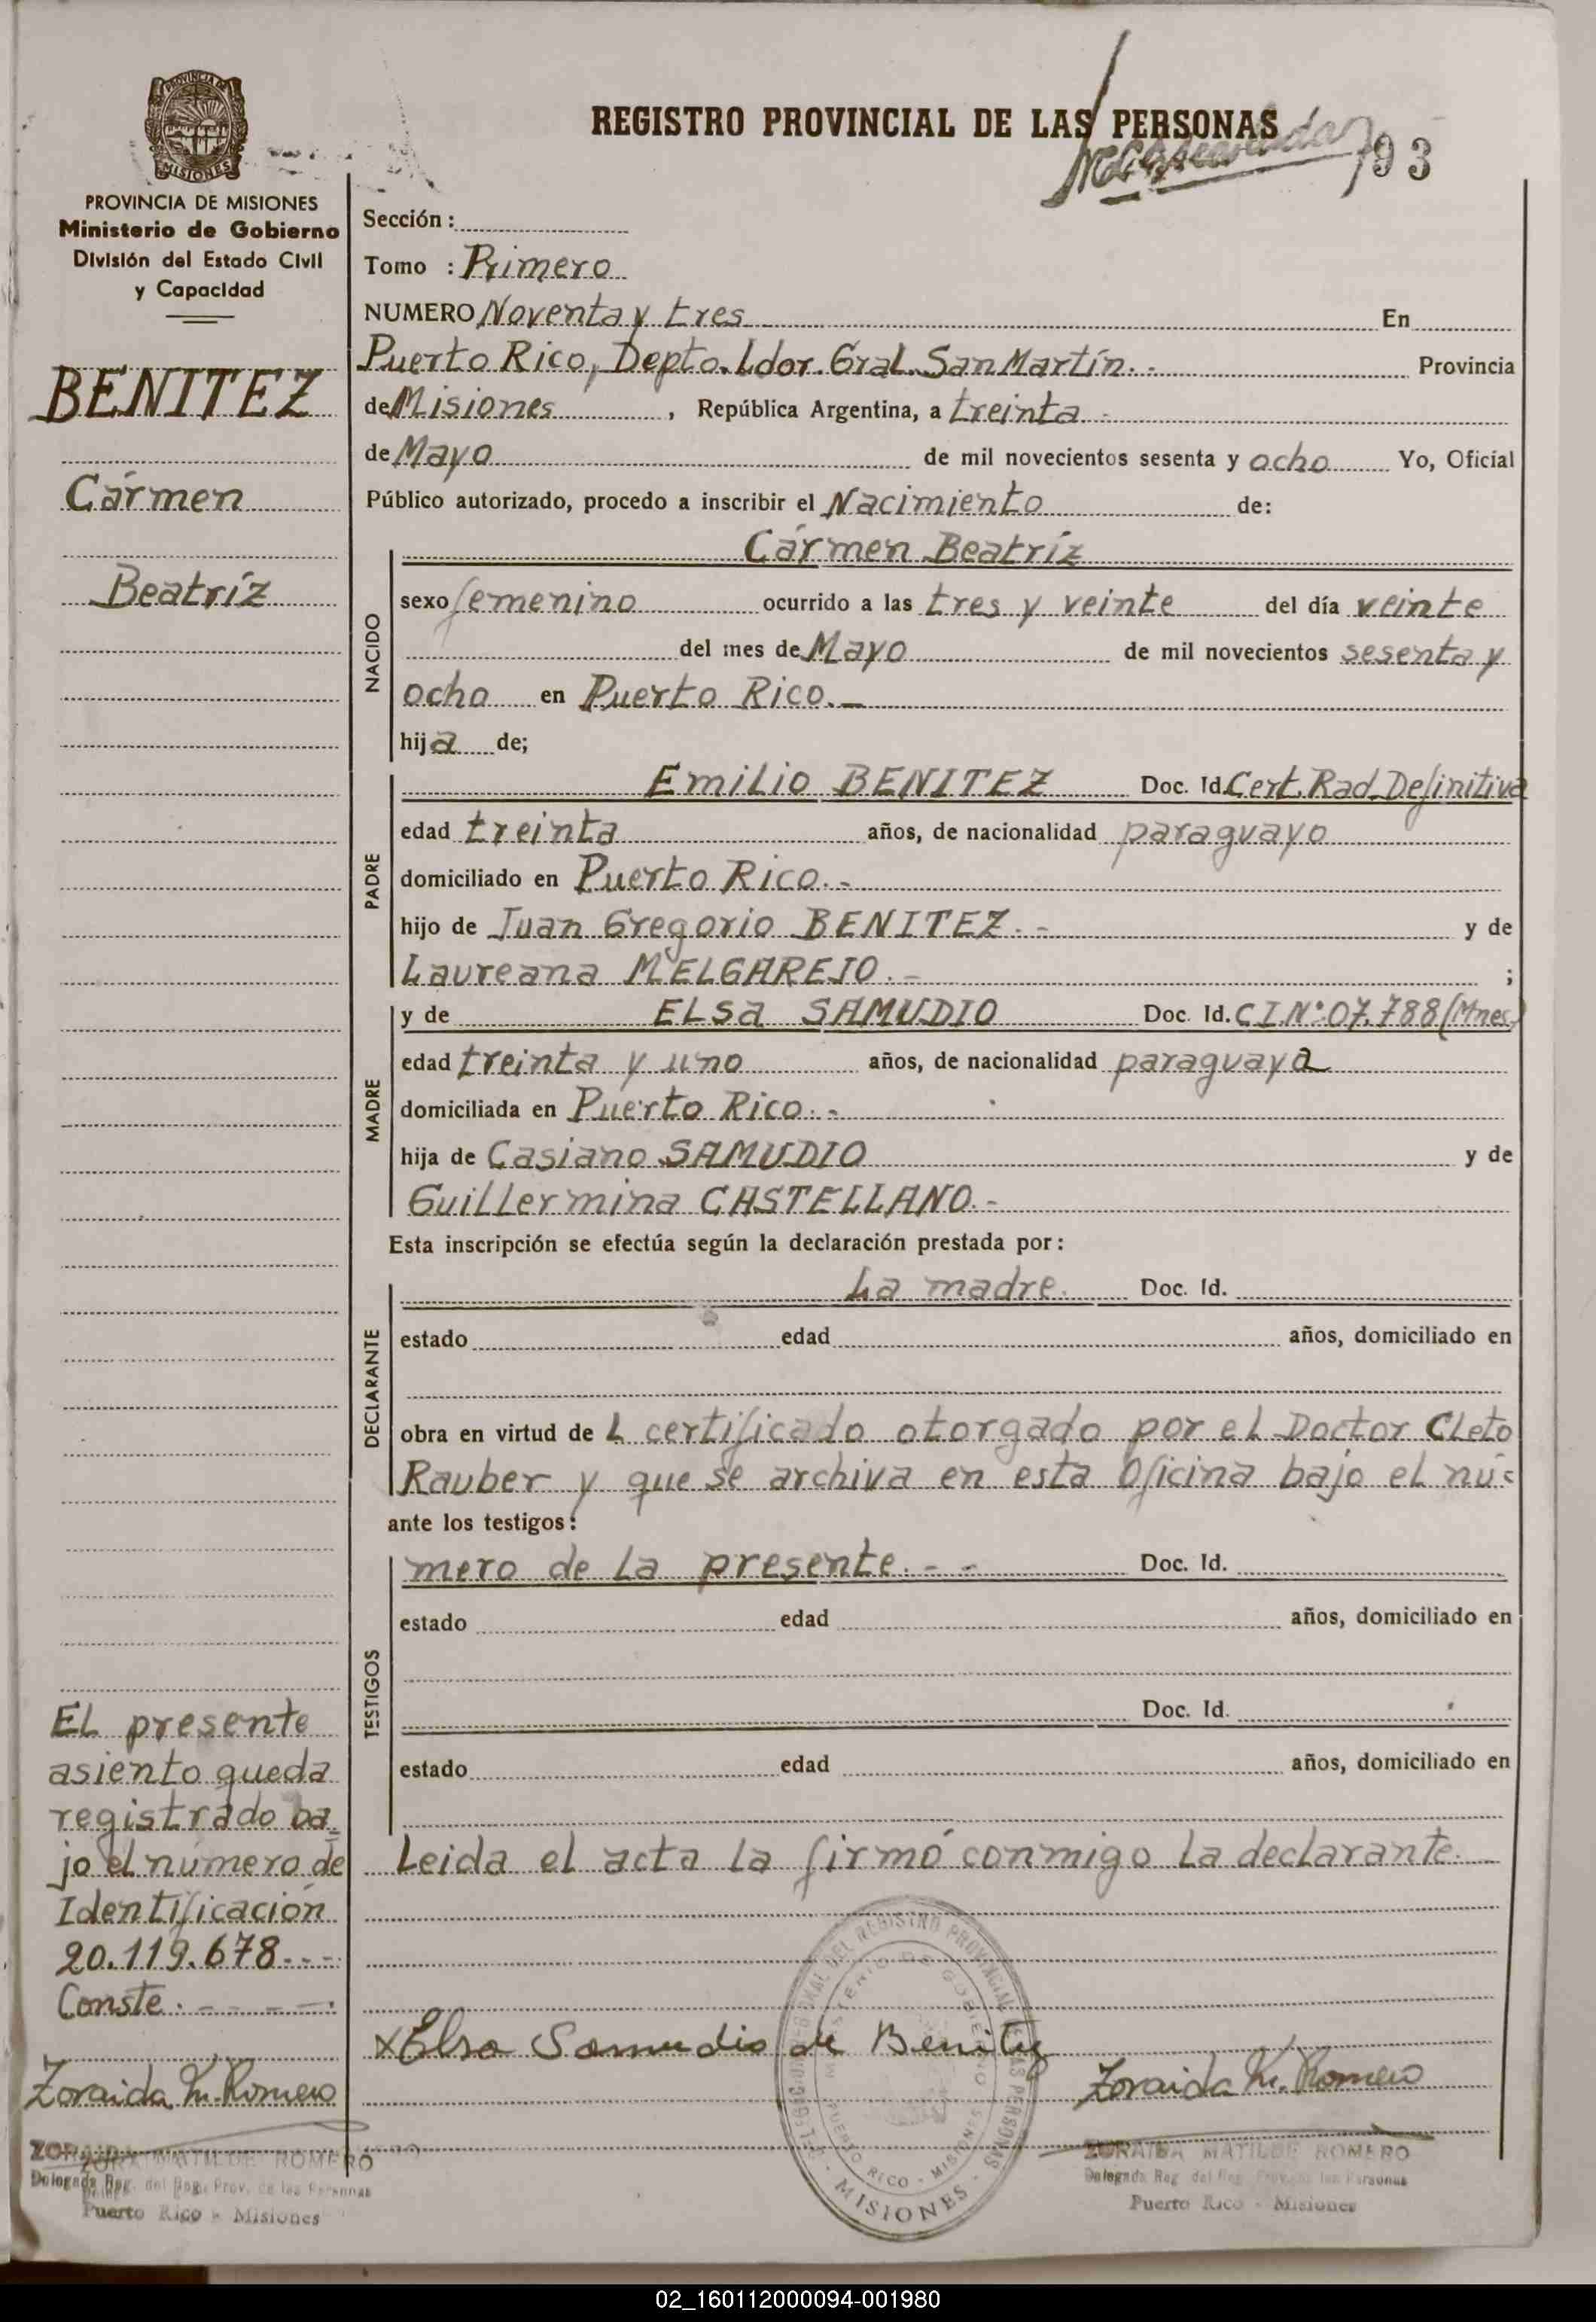 REGISTRO PROVINCIAL DE LAS PERSONAS
93
PROVINCIA DE
MISIONES
PROVINCIA DE MISIONES
Ministerio de Gobierno
División del Estado Civil
y Capacidad
BENITEZ
Cármen
Beatríz
El presente
asiento queda
registrado ba=
jo el número de
Identificación
20.119.678.---
Conste.-----.
Zoraida M. Romero
ZORAIDA MATILDE ROMERO
Delegada Reg. del Reg. Prov. de las Personas
Puerto Rico - Misiones
Sección:
Tomo : Primero
NUMERO Noventa y tres En
Puerto Rico, Depto. Ldor. Gral. San Martín.- Provincia
de Misiones, República Argentina, a treinta -
de Mayo de mil novecientos sesenta y ocho Yo, Oficial
Público autorizado, procedo a inscribir el Nacimiento de:
Cármen Beatríz
NACIDO
sexo femenino ocurrido a las tres y veinte del día veinte
del mes de Mayo de mil novecientos sesenta y
ocho en Puerto Rico.-
hija de;
PADRE
Emilio BENITEZ Doc. Id. Cert. Rad. Definitiva
edad treinta años, de nacionalidad paraguayo
domiciliado en Puerto Rico.-
hijo de Juan Gregorio BENITEZ.- y de
Laureana MELGAREJO.- ;
MADRE
y de ELSa SAMUDIO Doc. Id. C.I.Nº:07.788(Mnes.)
edad treinta y uno años, de nacionalidad paraguaya
domiciliada en Puerto Rico.-
hija de Casiano SAMUDIO y de
Guillermina CASTELLANO.-
Esta inscripción se efectúa según la declaración prestada por:
DECLARANTE
La madre. Doc. Id.
estado edad años, domiciliado en
obra en virtud de l certificado otorgado por el Doctor Cleto
Rauber y que se archiva en esta Oficina bajo el nú=
ante los testigos:
TESTIGOS
mero de la presente.-- Doc. Id.
estado edad años, domiciliado en
Doc. Id.
estado edad años, domiciliado en
Leida el acta la firmó conmigo la declarante.
x Elsa Samudio de Benitez
Zoraida M. Romero
DELEGACION REGIONAL DEL REGISTRO PROVINCIAL DE LAS PERSONAS
MINISTERIO DE GOBIERNO
PUERTO RICO - MISIONES
- MISIONES -
ZORAIDA MATILDE ROMERO
Delegada Reg. del Reg. Prov. de las Personas
Puerto Rico - Misiones
02_160112000094-001980